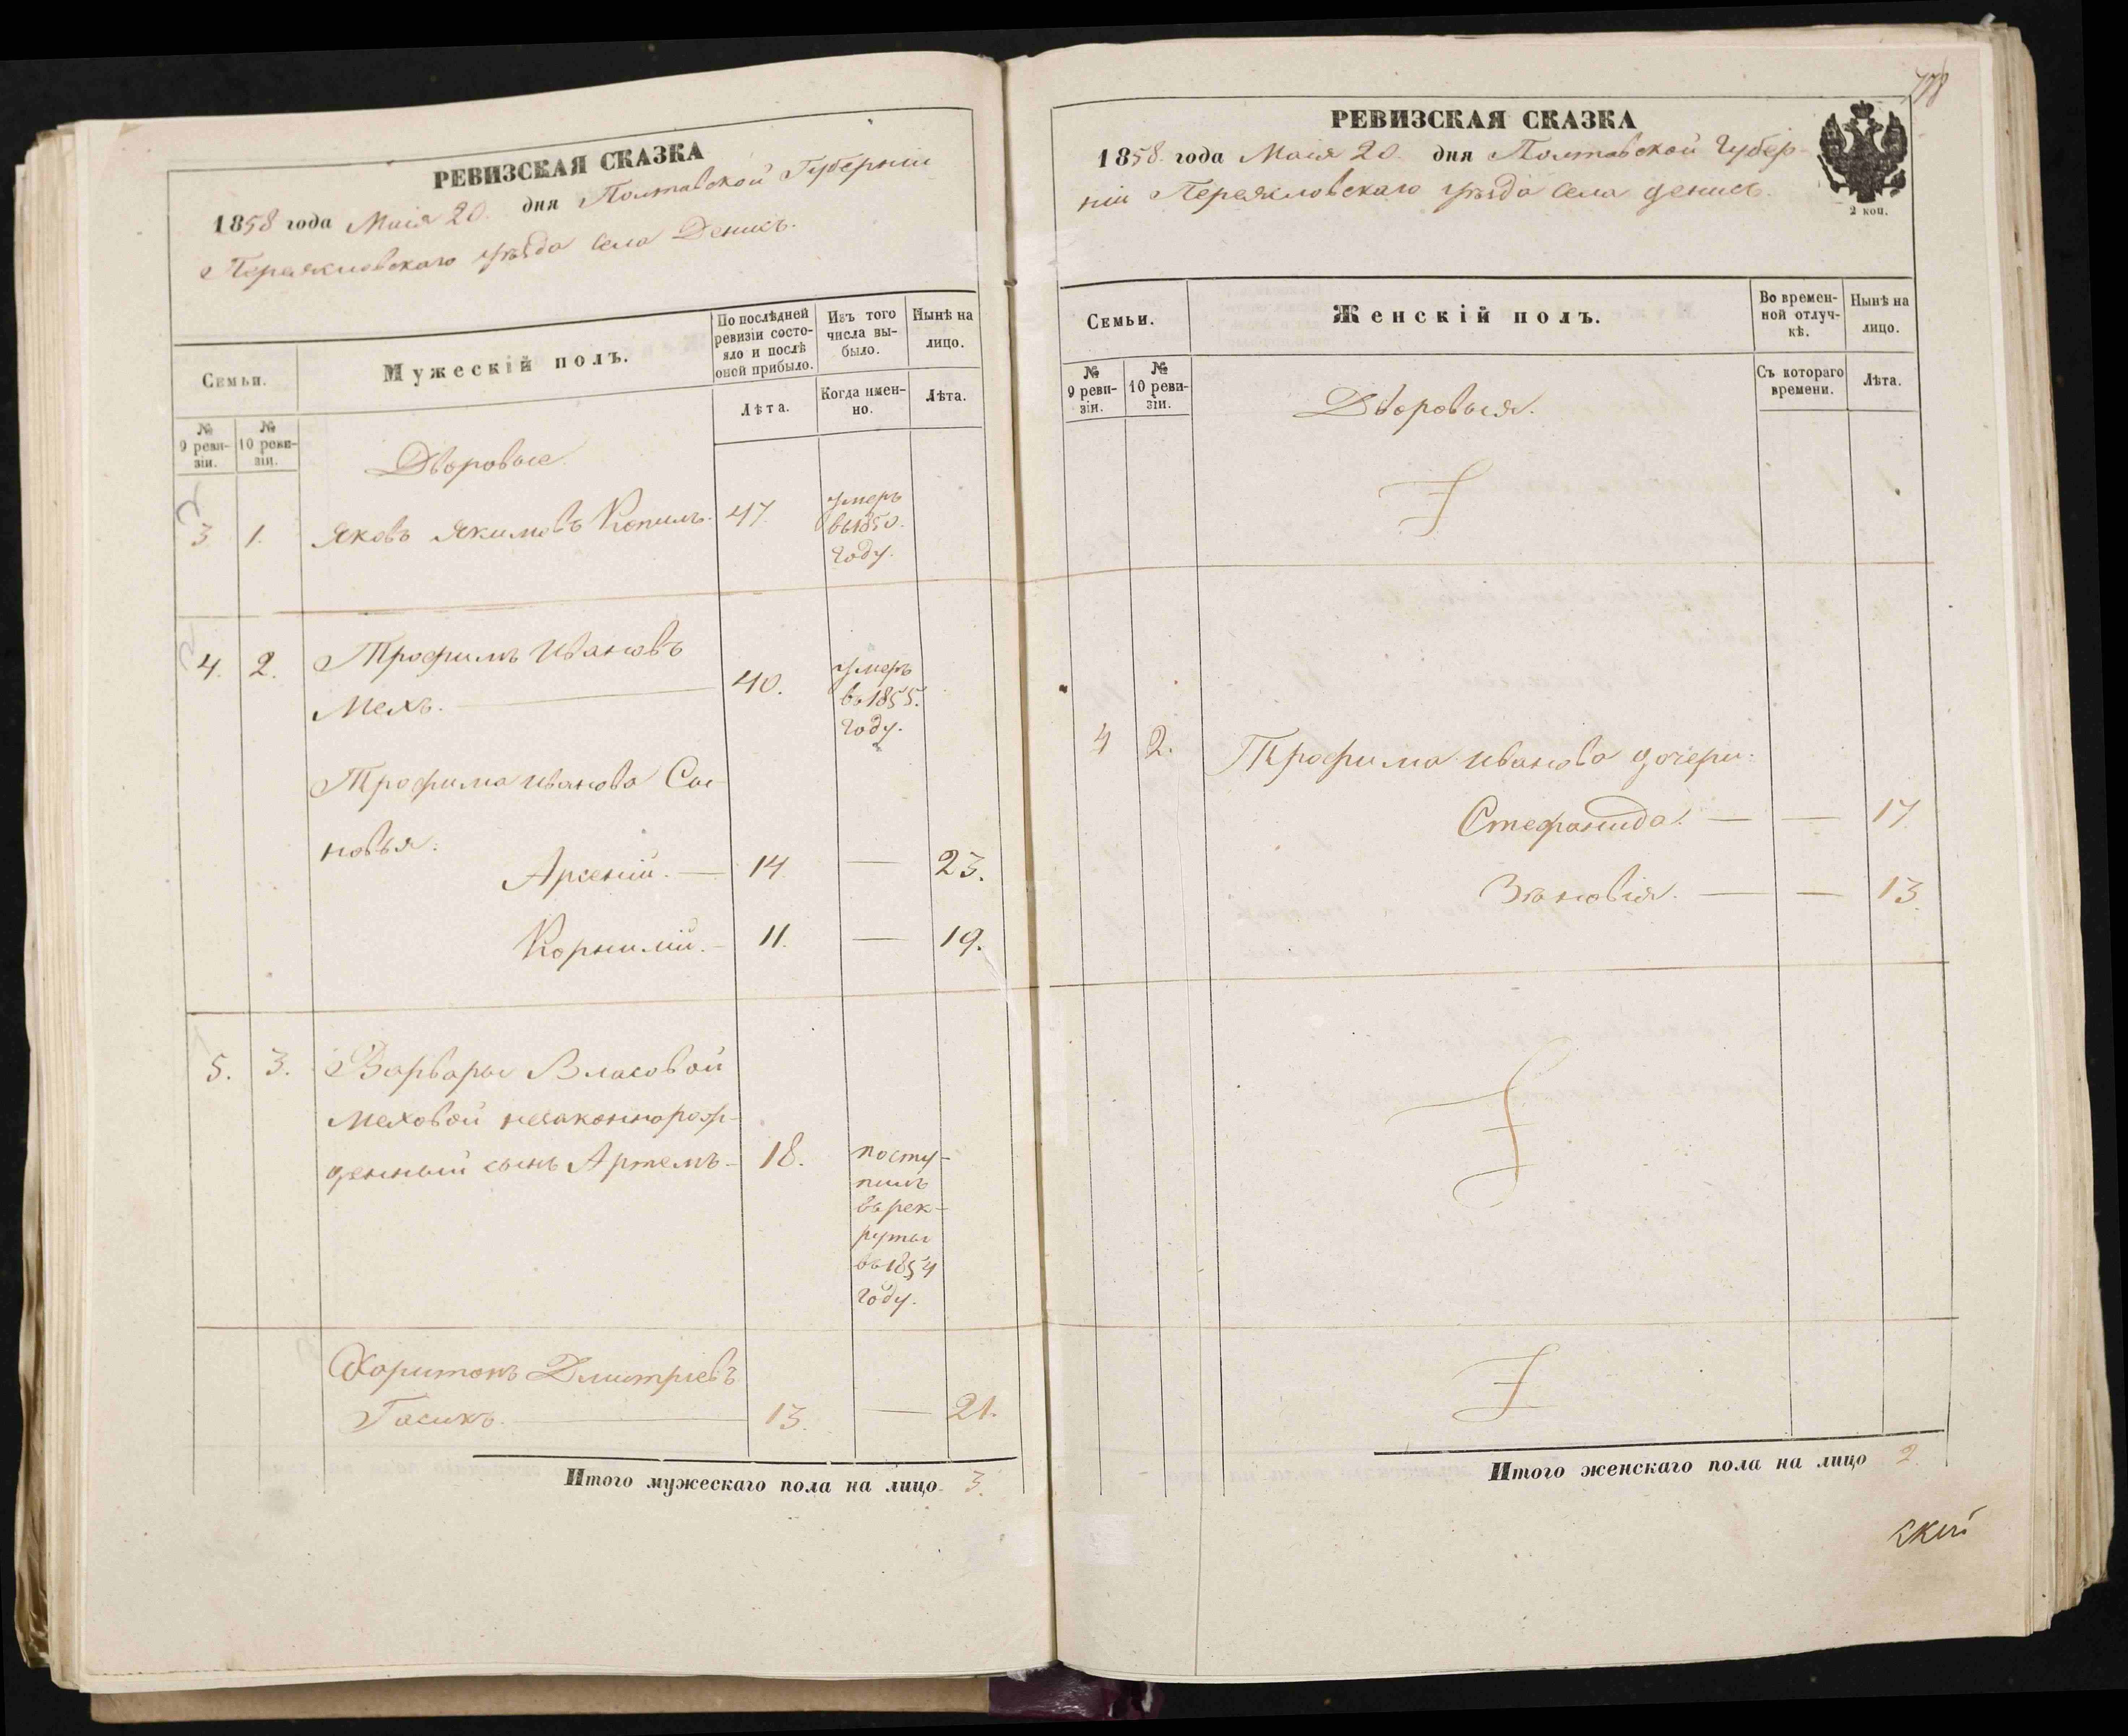 РЕВИЗСКАЯ СКАЗКА
1858 года Маія 20. дня Полтавской Губерніи
Переяславскаго уѣзда села Денисъ.
Семьи.
Мужескій полъ.
По послѣдней ревизіи состояло и послѣ оней прибыло.
Изъ того числа выбыло.
Нынѣ на лицо.
Лѣта.
Когда именно.
Лѣта.
№ 9 ревизіи.
№ 10 ревизіи.
Дворовые
3 1. Яковъ Якимовъ Копилъ. 47 умеръ
въ 1850.
году.
4. 2. Трофимъ Ивановъ
Мехъ. — 40. умеръ
въ 1855.
году.
Трофима Иванова Сы-
новья:
Арсеній. — 14 — 23.
Корнилій. — 11. — 19.
5. 3. Варвары Власовой
Меховой незаконнорож-
денный сынъ Артемъ — 18. посту-
пилъ
въ рек-
руты
въ 1854
году.
Харитонъ Дмитріевъ
Гасикъ. — 13. — 21.
Итого мужескаго пола на лицо 3.
778
РЕВИЗСКАЯ СКАЗКА
1858. года Маія 20. дня Полтавской Губер-
ніи Переяславскаго уѣзда села Денисъ.
2 коп.
Семьи.
Женскій полъ.
Во временной отлучкѣ.
Нынѣ на лицо.
№ 9 ревизіи.
№ 10 ревизіи.
Съ котораго времени.
Лѣта.
Дворовыя.
4 2. Трофима Иванова дочери:
Стефанида. — — 17
Зѣновія. — — 13.
Итого женскаго пола на лицо 2.
скій